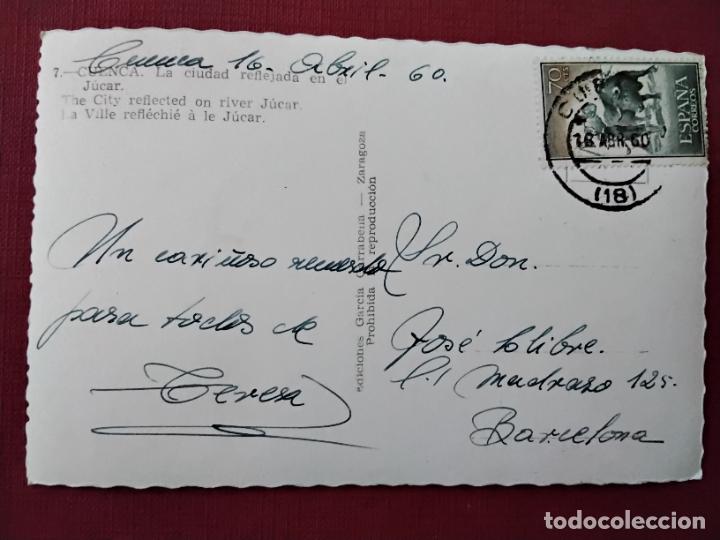 Cuenca 16- Abril- 60.
7.—CUENCA. La ciudad reflejada en el
Júcar.
The City reflected on river Júcar.
La Ville refléchié à le Júcar.
70 CTS
ESPAÑA
CORREOS
ABR. 60
(18)
Un cariñoso recuerdo
para todos de
Teresa
Ediciones García Garrabella — Zaragoza
Prohibida la reproducción
Sr. Don.
José
Madrazo 125.
Barcelona
todocoleccion.net